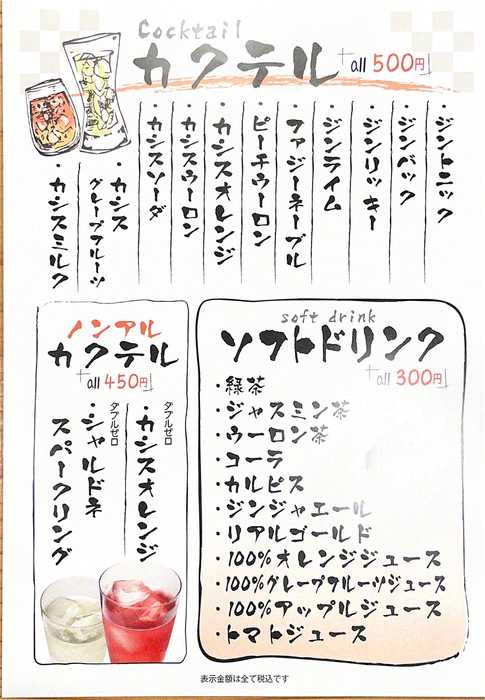 Cocktail
カクテル
all 500円
・ジントニック
・ジンバック
・ジンリッキー
・ジンライム
・ファジーネーブル
・ピーチウーロン
・カシスオレンジ
・カシスウーロン
・カシスソーダ
・カシス
グレープフルーツ
・カシスミルク
ノンアル
カクテル
all 450円
ダブルゼロ
・カシスオレンジ
ダブルゼロ
・シャルドネ
スパークリング
soft drink
ソフトドリンク
all 300円
・緑茶
・ジャスミン茶
・ウーロン茶
・コーラ
・カルピス
・ジンジャエール
・リアルゴールド
・100%オレンジジュース
・100%グレープフルーツジュース
・100%アップルジュース
・トマトジュース
表示金額は全て税込です